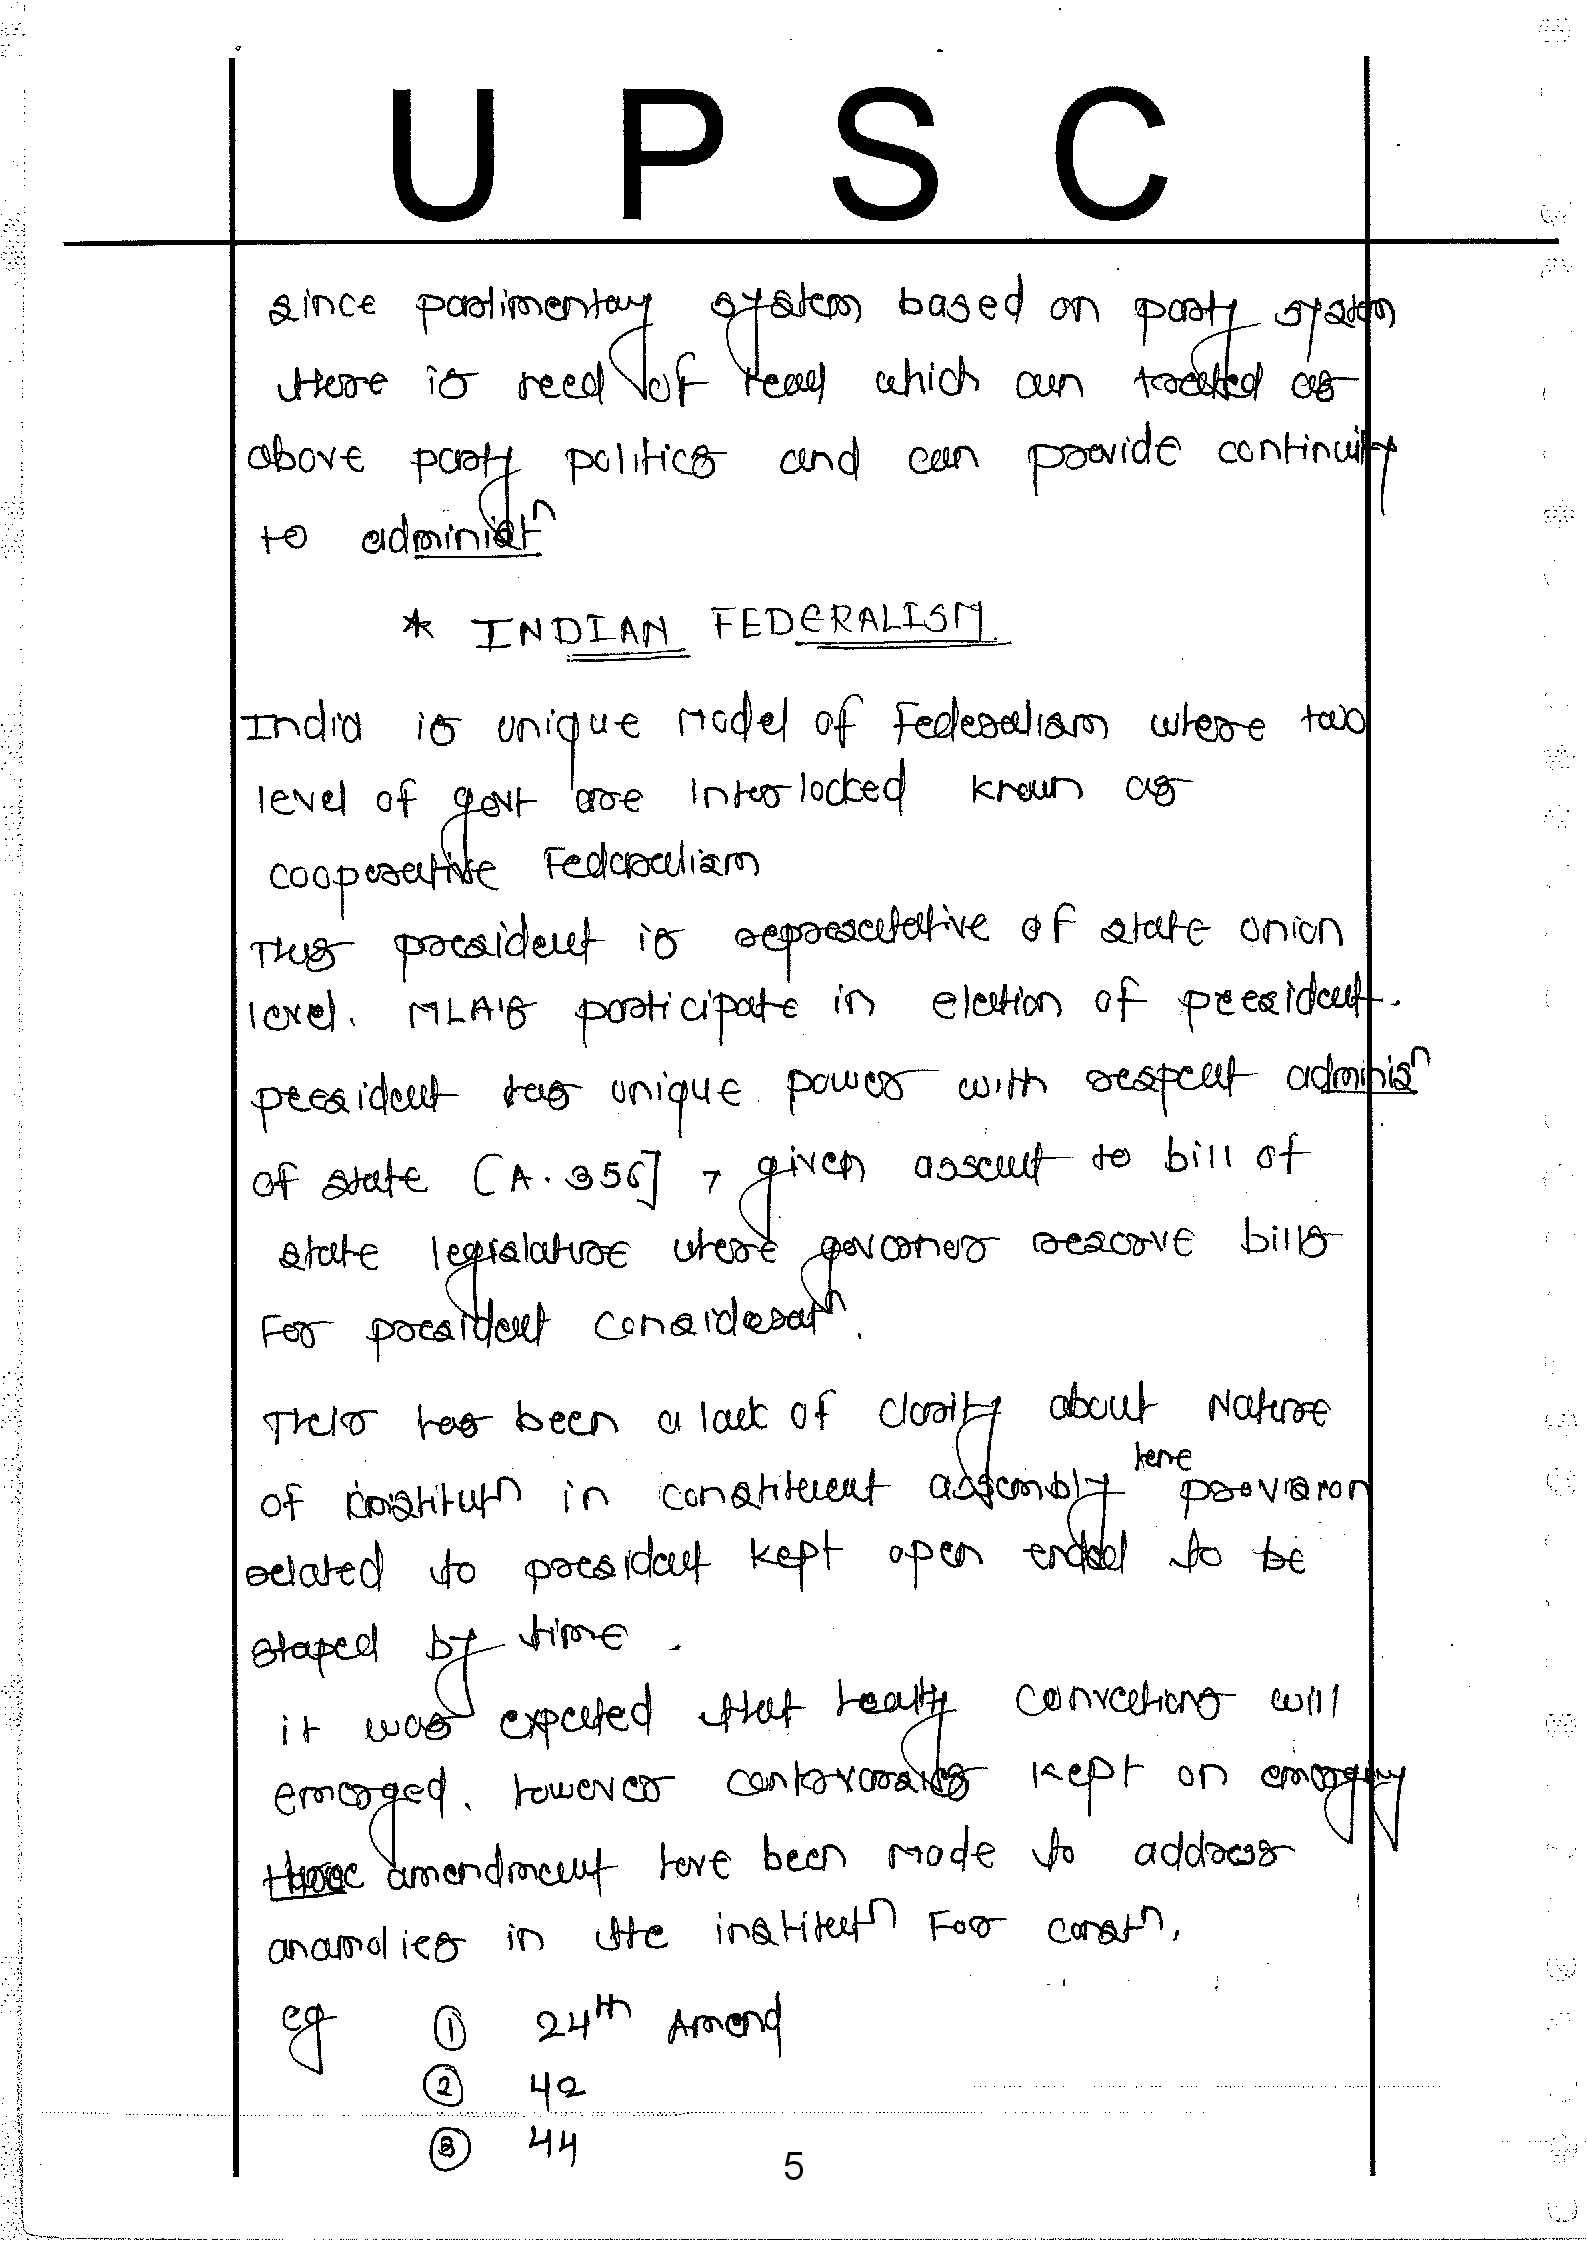 UPSC
since parlimentary system based on party system
there is need of head which can treated as
above party politics and can provide continuity
to administⁿ
* INDIAN FEDERALISM
India is unique model of Federalism where two
level of govt are interlocked known as
cooperative Federalism
Thus president is representative of state union
level. MLA's participate in election of president.
president has unique power with respect adminisⁿ
of state [A.356], given assent to bill of
state legislature where governer reserve bills
For president consideratⁿ.
Their has been a lack of clarity about Nature
of institutⁿ in constituent assembly hene provision
related to president kept open ended to be
shaped by time.
it was expected that healty conventions will
emerged. however contorversies kept on emerging
three amendment have been made to address
anamolies in the institutⁿ For constⁿ.
eg ① 24th Amend
② 42
③ 44
5